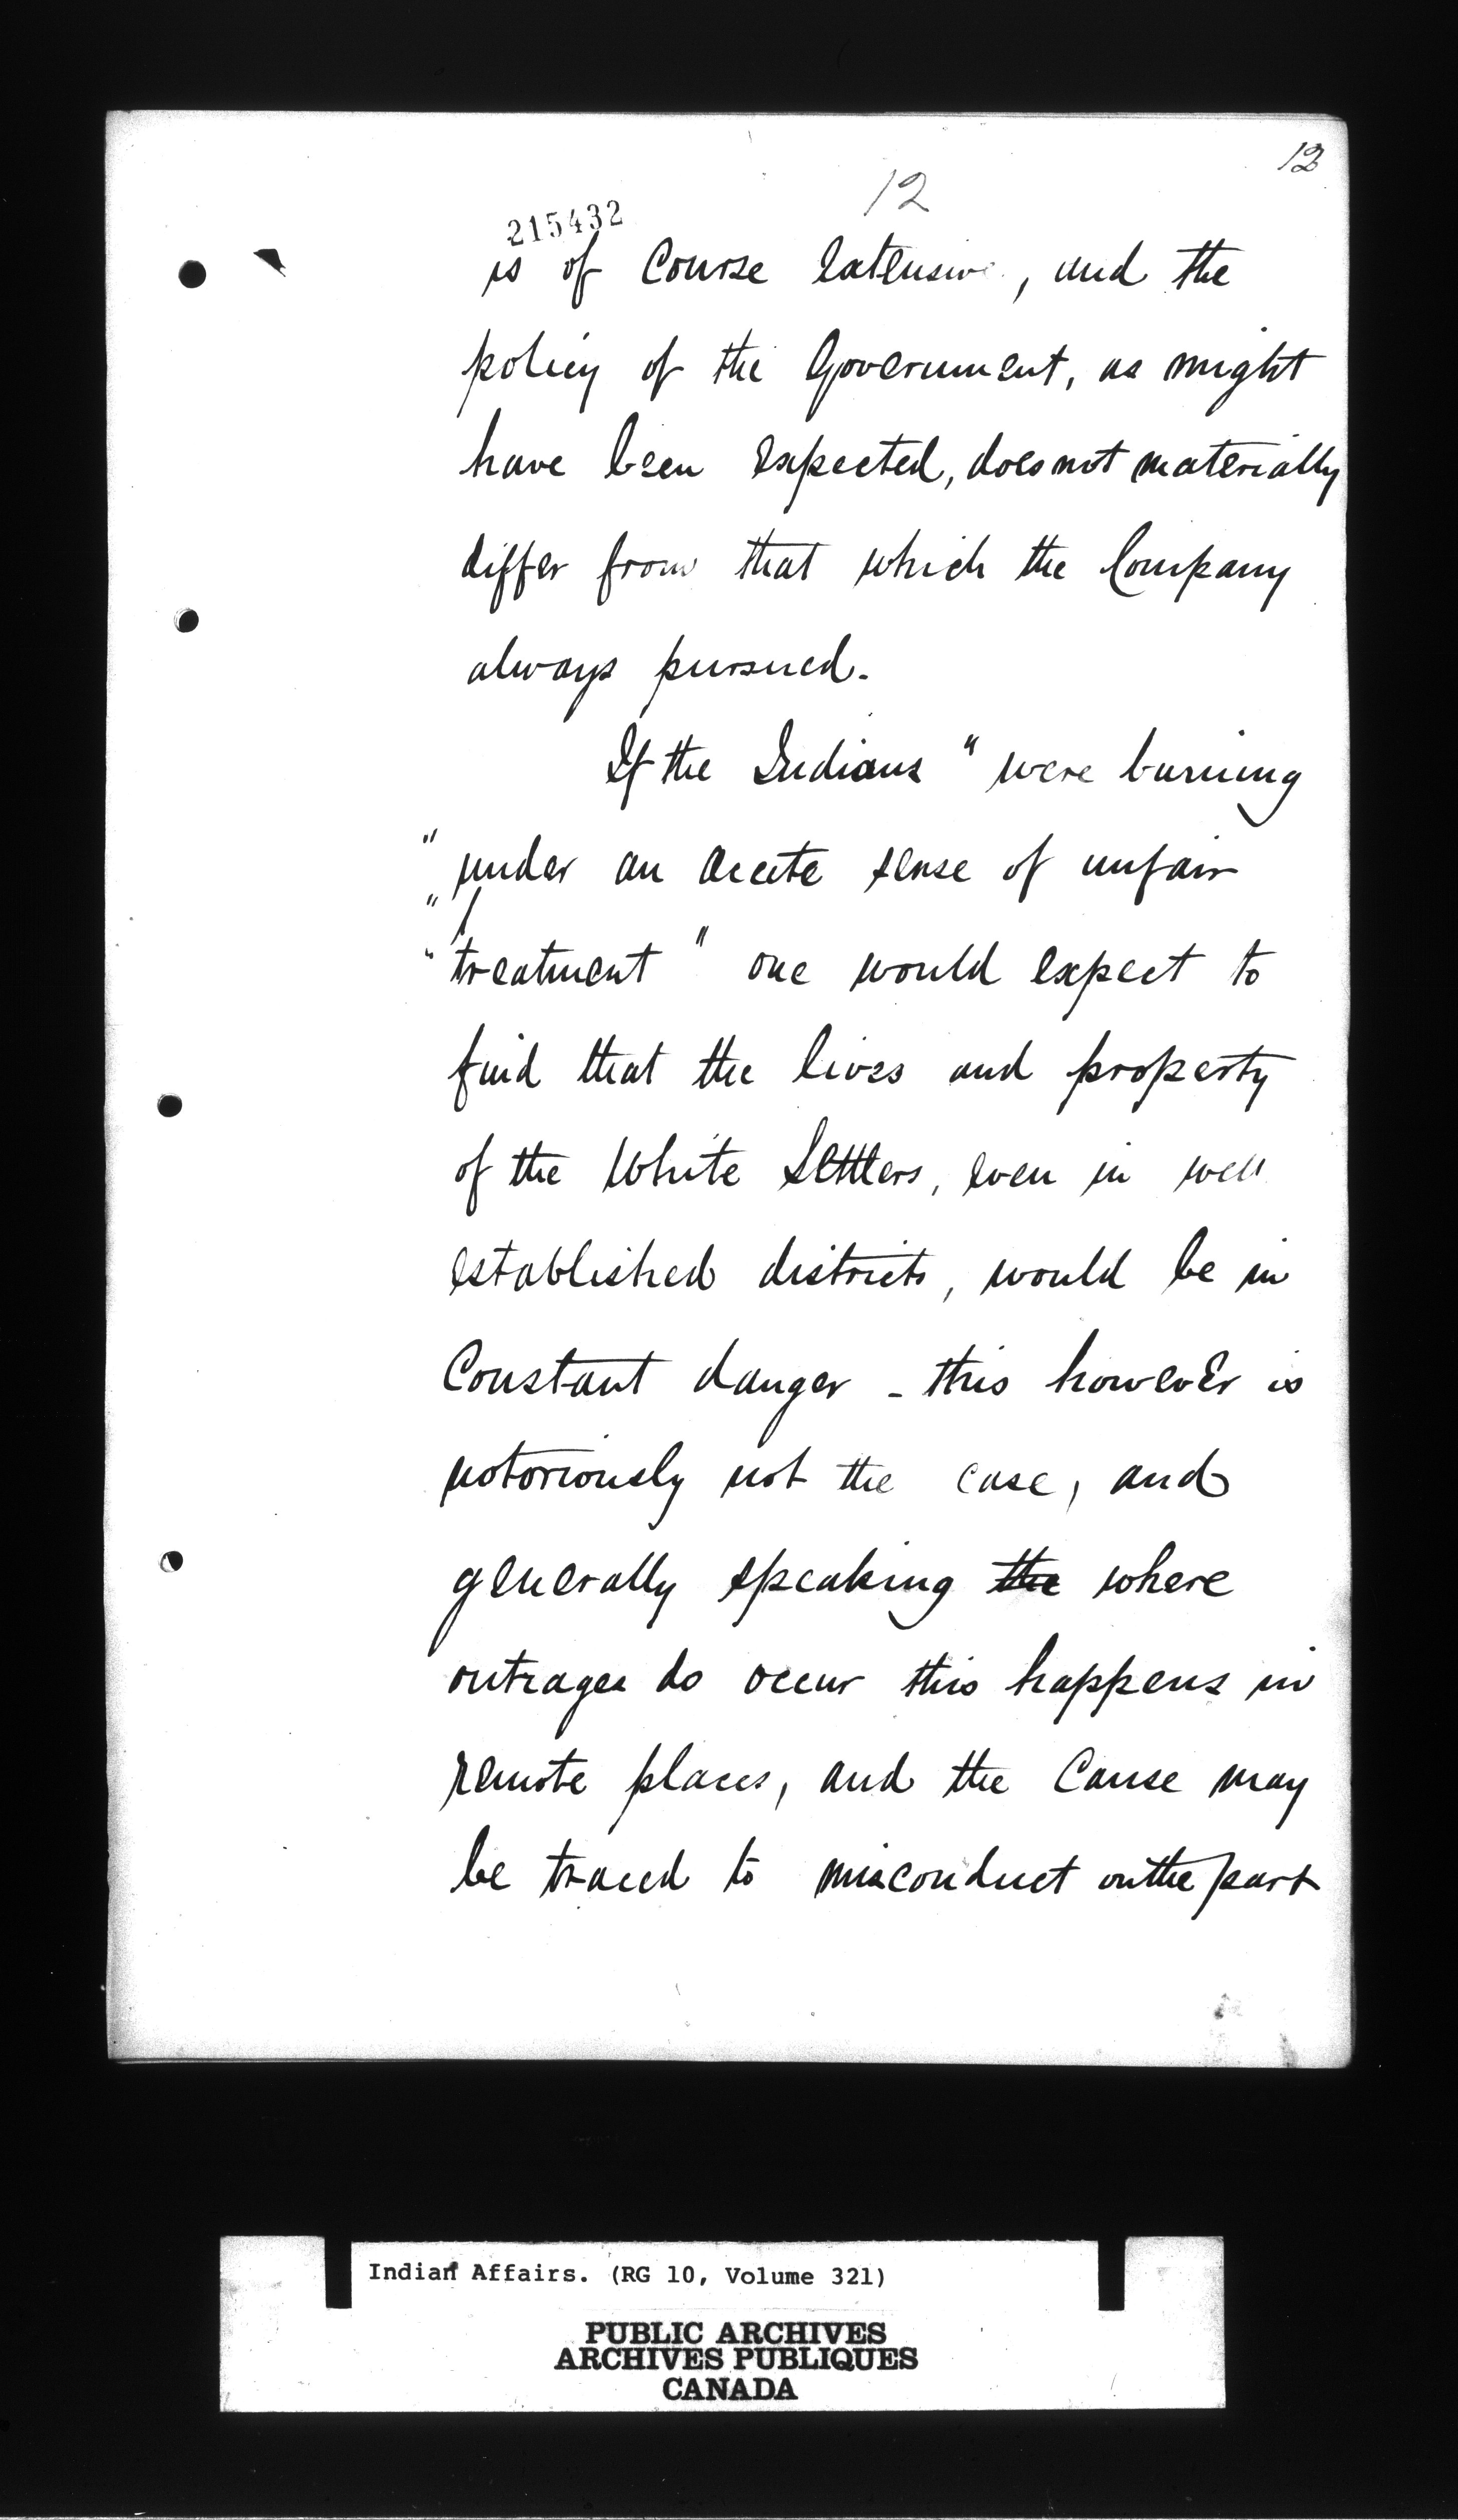 12
12
215432
is of Course extensive, and the
policy of the Government, as might
have been expected, does not materially
differ from that which the Company
always pursued.
If the Indians " were burning
" under an acute sense of unfair
"
" treatment " one would expect to
find that the lives and property
of the White Settlers, even in well
established districts, would be in
Constant danger - this however is
notoriously not the case, and
generally speaking the where
outrages do occur this happens in
remote places, and the Cause may
be traced to misconduct on the part
Indian Affairs. (RG 10, Volume 321)
PUBLIC ARCHIVES
ARCHIVES PUBLIQUES
CANADA